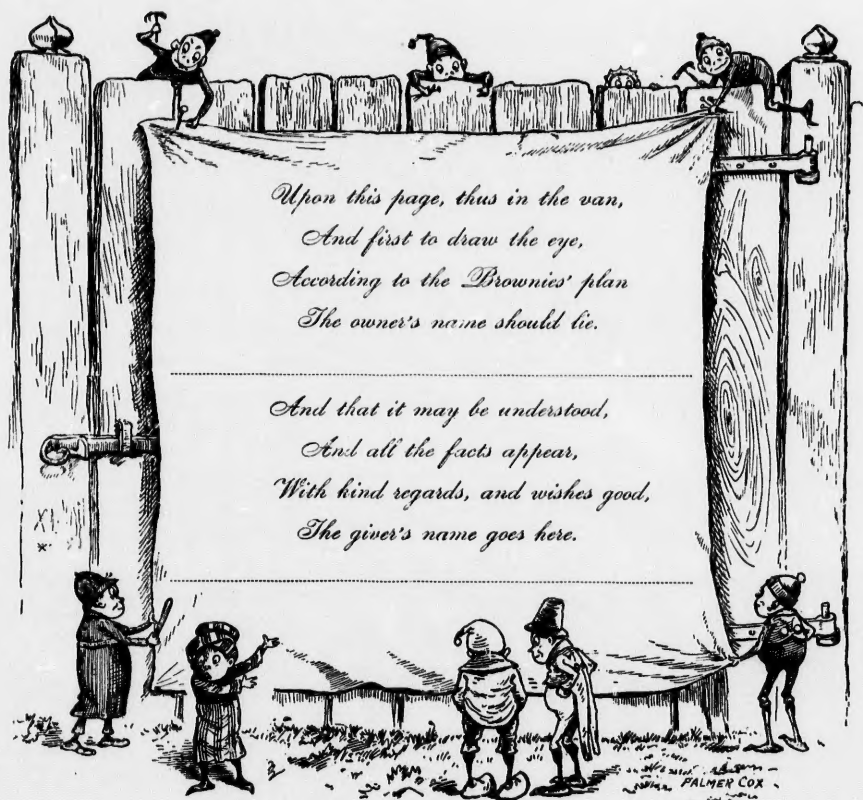 Upon this page, thus in the van,
And first to draw the eye,
According to the Brownies' plan
The owner's name should lie.
And that it may be understood,
And all the facts appear,
With kind regards, and wishes good,
The giver's name goes here.
PALMER COX